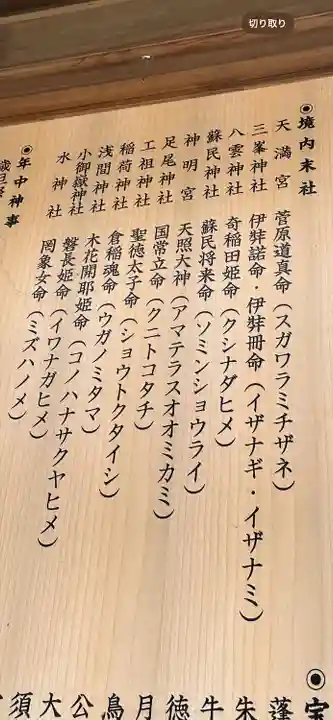 切り取り
◉境内末社
天満宮 菅原道真命(スガワラミチザネ)
三峯神社 伊弉諾命・伊弉冊命(イザナギ・イザナミ)
八雲神社 奇稲田姫命(クシナダヒメ)
蘇民神社 蘇民将来命(ソミンショウライ)
神明宮 天照大神(アマテラスオオミカミ)
足尾神社 国常立命(クニトコタチ)
工祖神社 聖徳太子命(ショウトクタイシ)
稲荷神社 倉稲魂命(ウガノミタマ)
浅間神社 木花開耶姫命(コノハナサクヤヒメ)
小御嶽神社 磐長姫命(イワナガヒメ)
水神社 罔象女命(ミズハノメ)
◉年中神事
歳旦祭
◉宝
蓬
朱
牛
徳
月
鳥
公
大
須